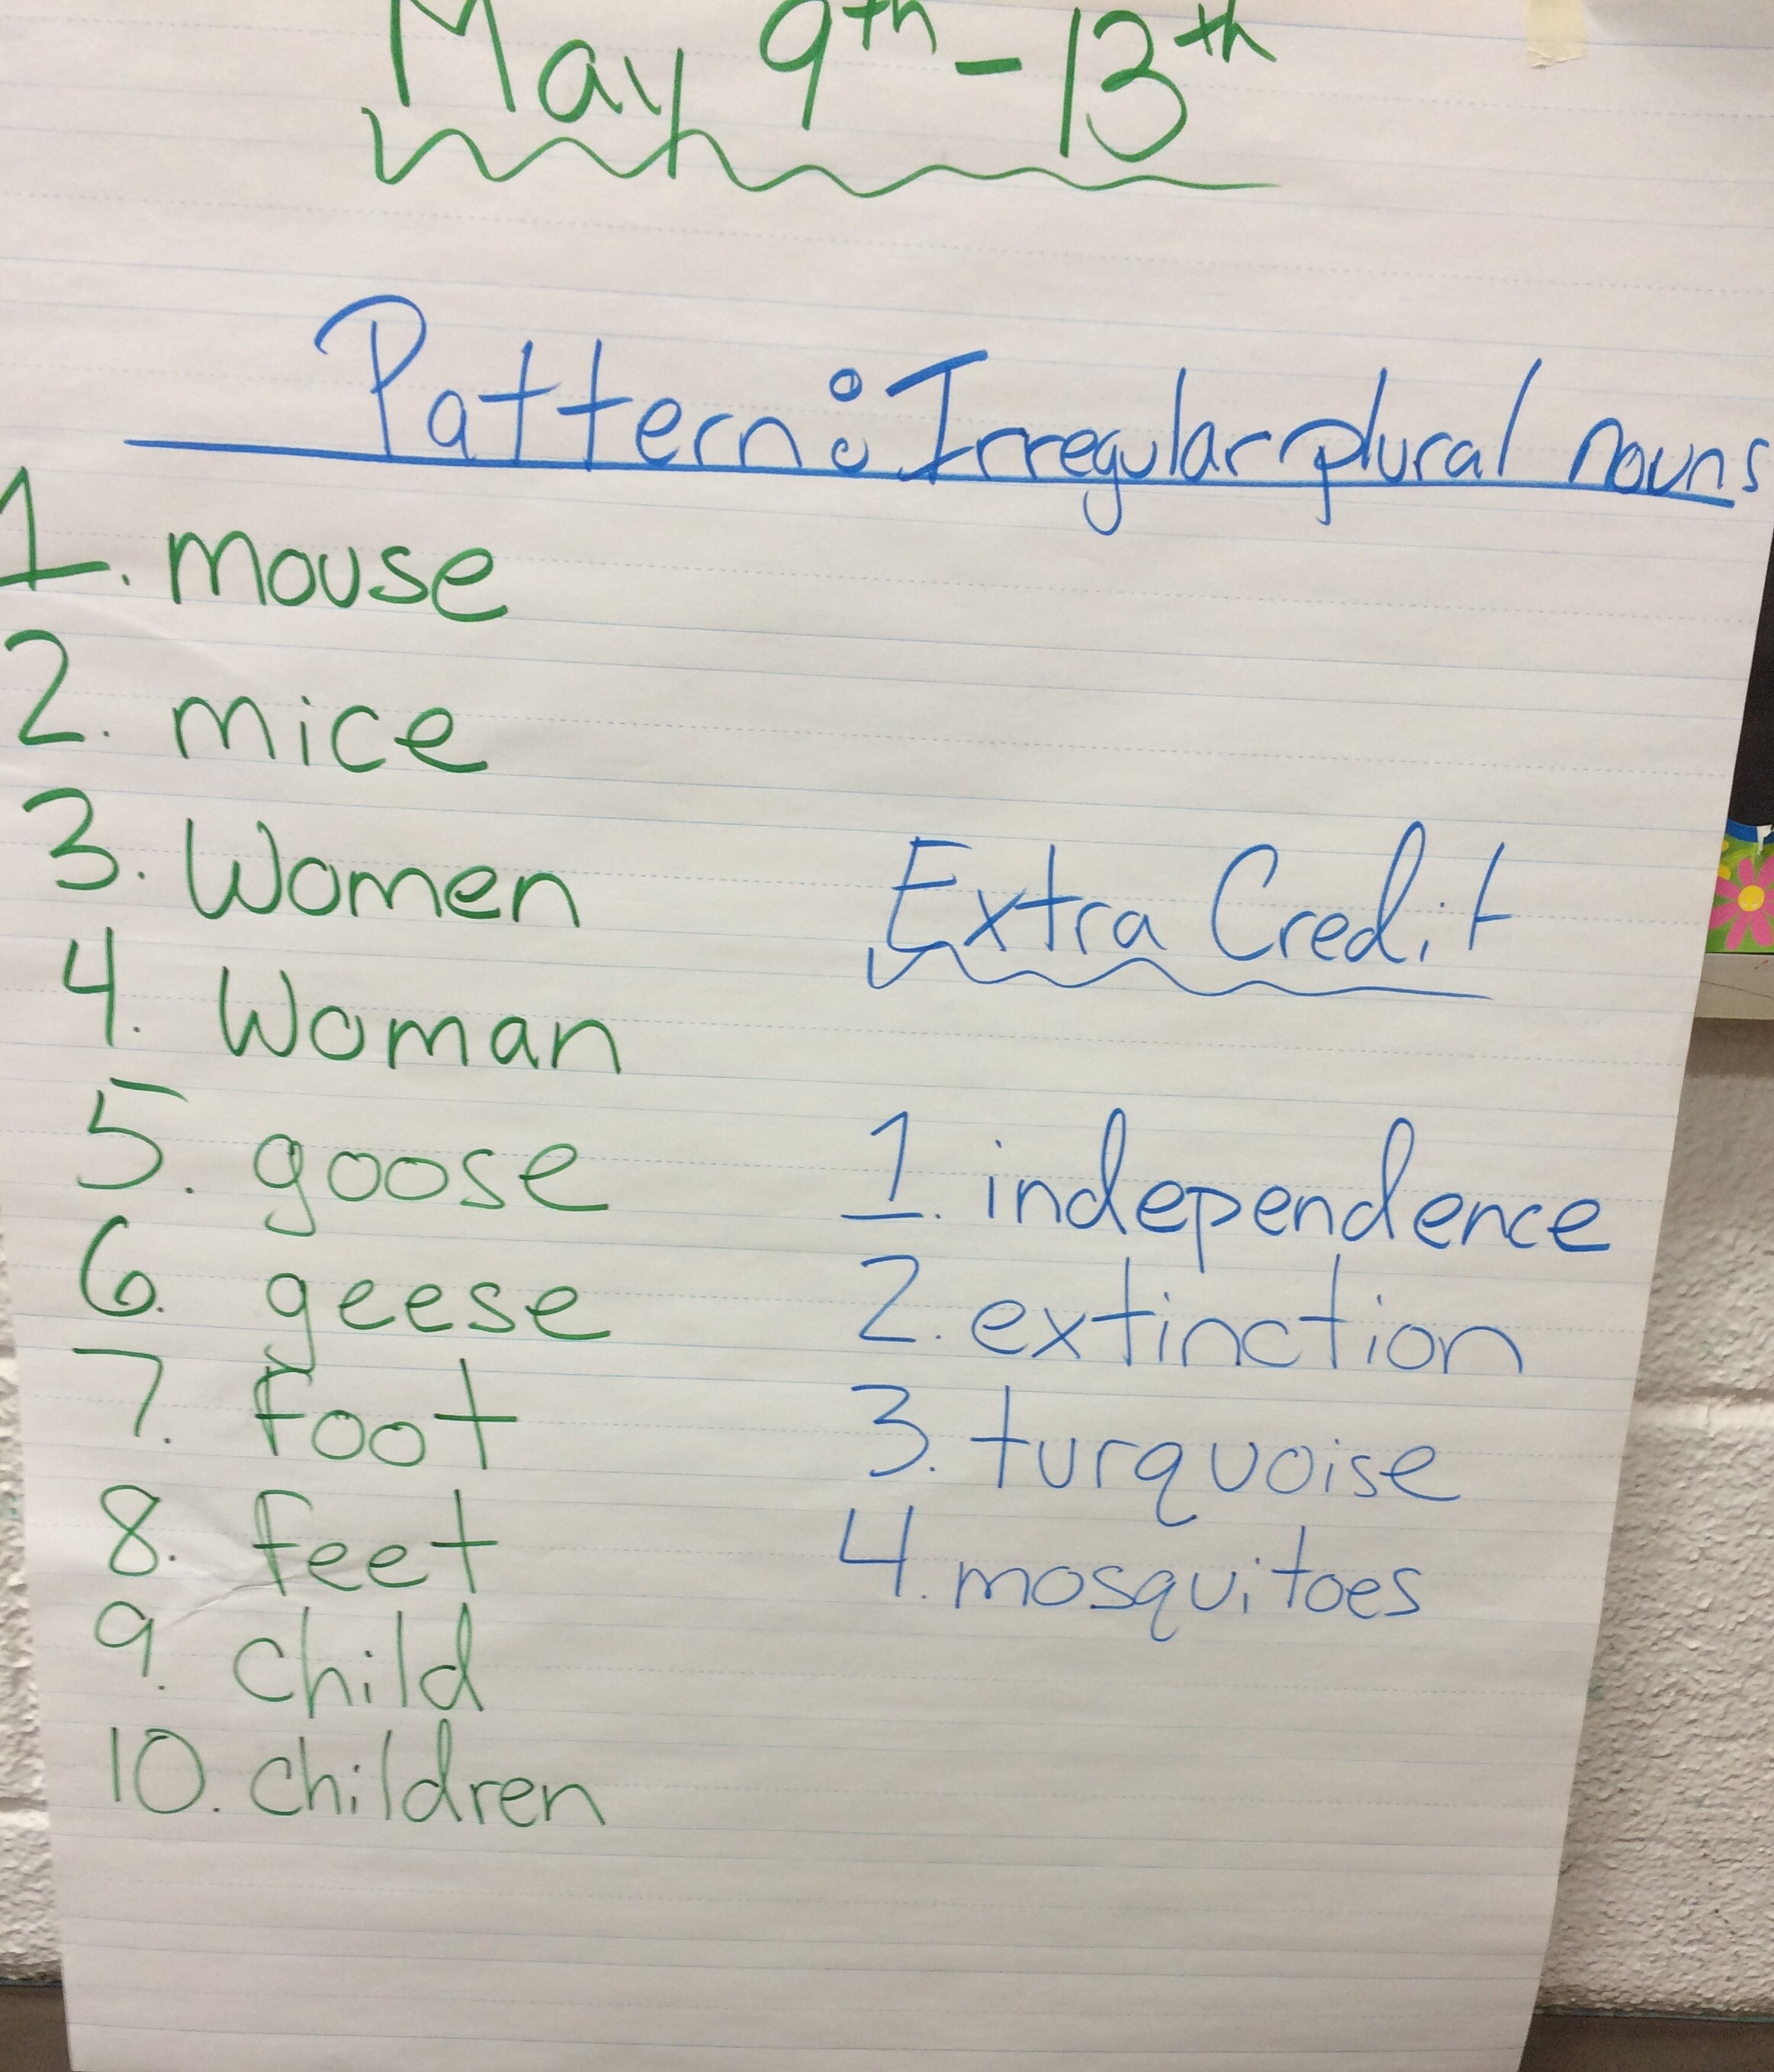 May 9th - 13th
Pattern: Irregular plural nouns
1. mouse
2. mice
3. Women
4. Woman
5. goose
6. geese
7. foot
8. feet
9. child
10. children
Extra Credit
1. independence
2. extinction
3. turquoise
4. mosquitoes